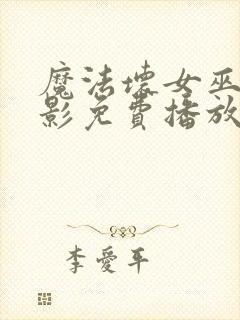 魔法壞女巫
影免費播放
李愛平